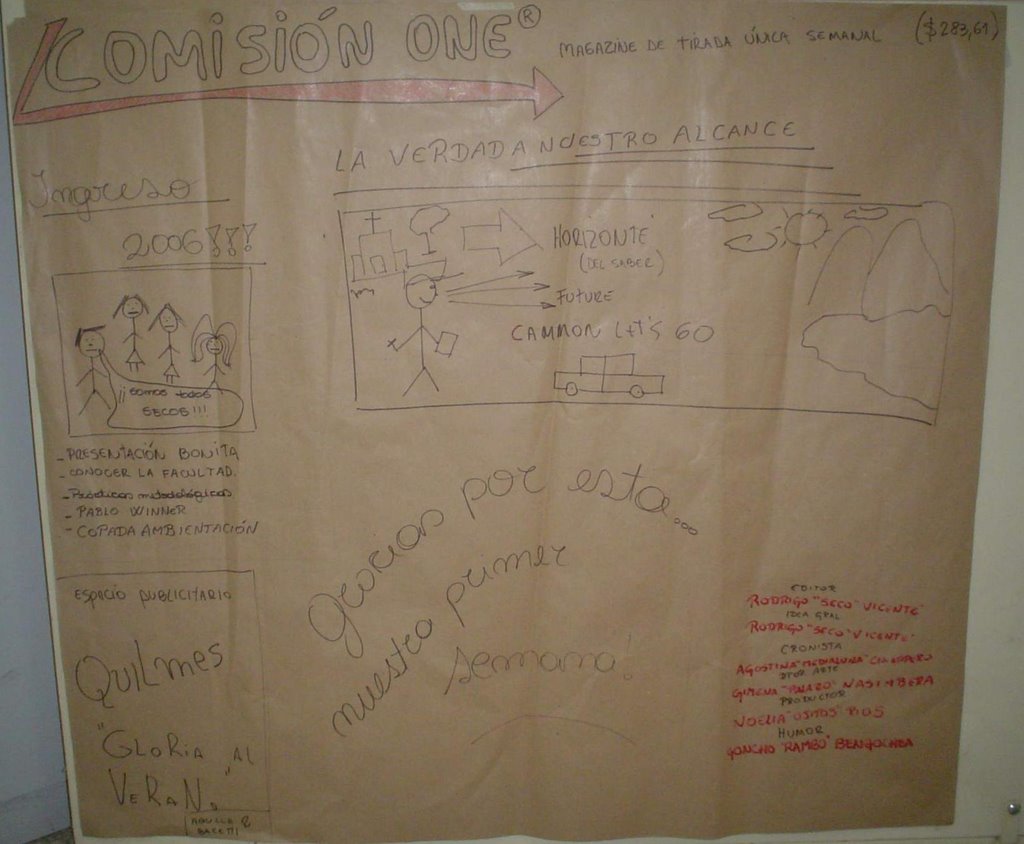 COMISIÓN ONE®
MAGAZINE DE TIRADA ÚNICA SEMANAL
($283,61)
LA VERDAD A NUESTRO ALCANCE
Ingreso
2006!!!
¡¡somos todos
SECOS!!!
- PRESENTACIÓN BONITA
- CONOCER LA FACULTAD.
- Prácticas metodológicas
- PABLO WINNER
- COPADA AMBIENTACIÓN
HORIZONTE
(DEL SABER)
FUTURE
CAMMON LET'S GO
Gracias por esta...
nuestra primer
semana!
ESPACIO PUBLICITARIO
QUILMES
"GLORIA AL
VERANO"
EDITOR
RODRIGO "SECO" VICENTE
IDEA GRAL
RODRIGO "SECO" VICENTE
CRONISTA
AGOSTINA "MEDIALUNA"
DTOR. ARTE
GIMENA NASIMBERA
PRODUCTOR
NOELIA "OSITOS" RIOS
HUMOR
GONCHO "RAMBO" BENGOCHEA